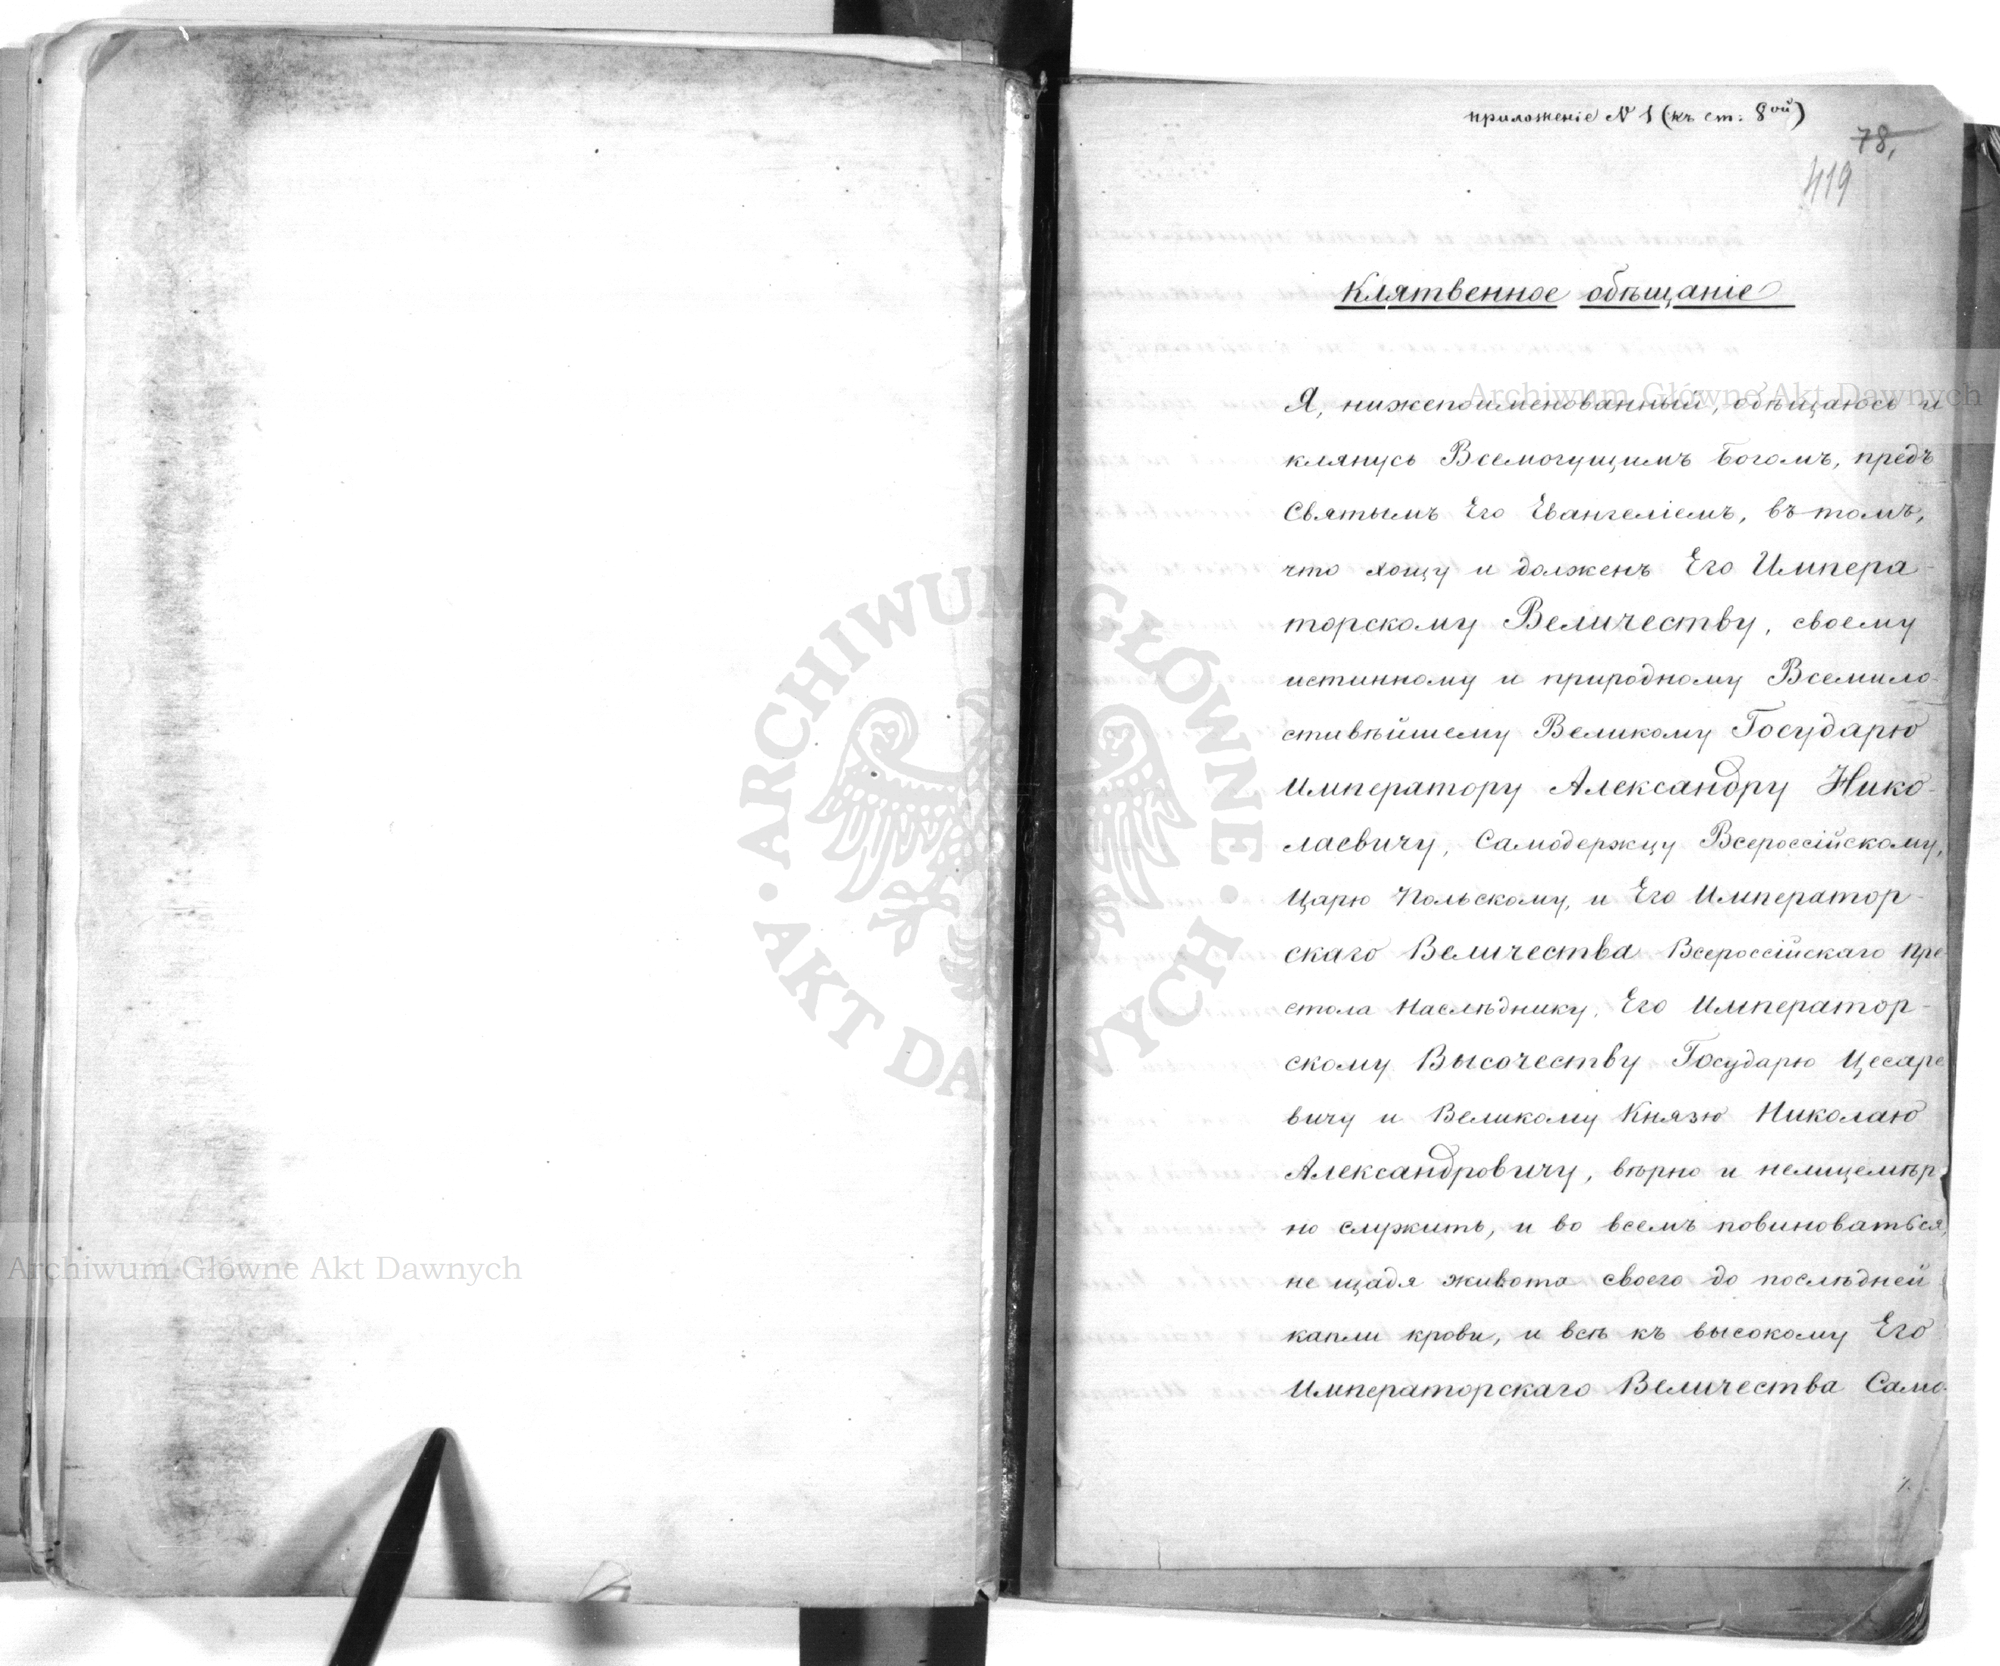 приложеніе N 1 (къ ст: 8ой)
78,
419
Клятвенное обѣщаніе
Я, нижепоименованный, обѣщаюсь и
клянусь Всемогущимъ Богомъ, предъ
Святымъ Его Евангеліемъ, въ томъ,
что хощу и долженъ Его Импера-
торскому Величеству, своему
истинному и природному Всемило-
стивѣйшему Великому Государю
Императору Александру Нико-
лаевичу, Самодержцу Всероссійскому,
Царю Польскому, и Его Император-
скаго Величества Всероссійскаго Пре-
стола Наслѣднику, Его Император-
скому Высочеству Государю Цесаре
вичу и Великому Князю Николаю
Александровичу, вѣрно и нелицемѣр
но служить, и во всемъ повиноваться,
не щадя живота своего до послѣдней
капли крови, и всѣ къ высокому Его
Императорскаго Величества Само-
Archiwum Główne Akt Dawnych
Archiwum Główne Akt Dawnych
ARCHIWUM GŁÓWNE · AKT DAWNYCH ·